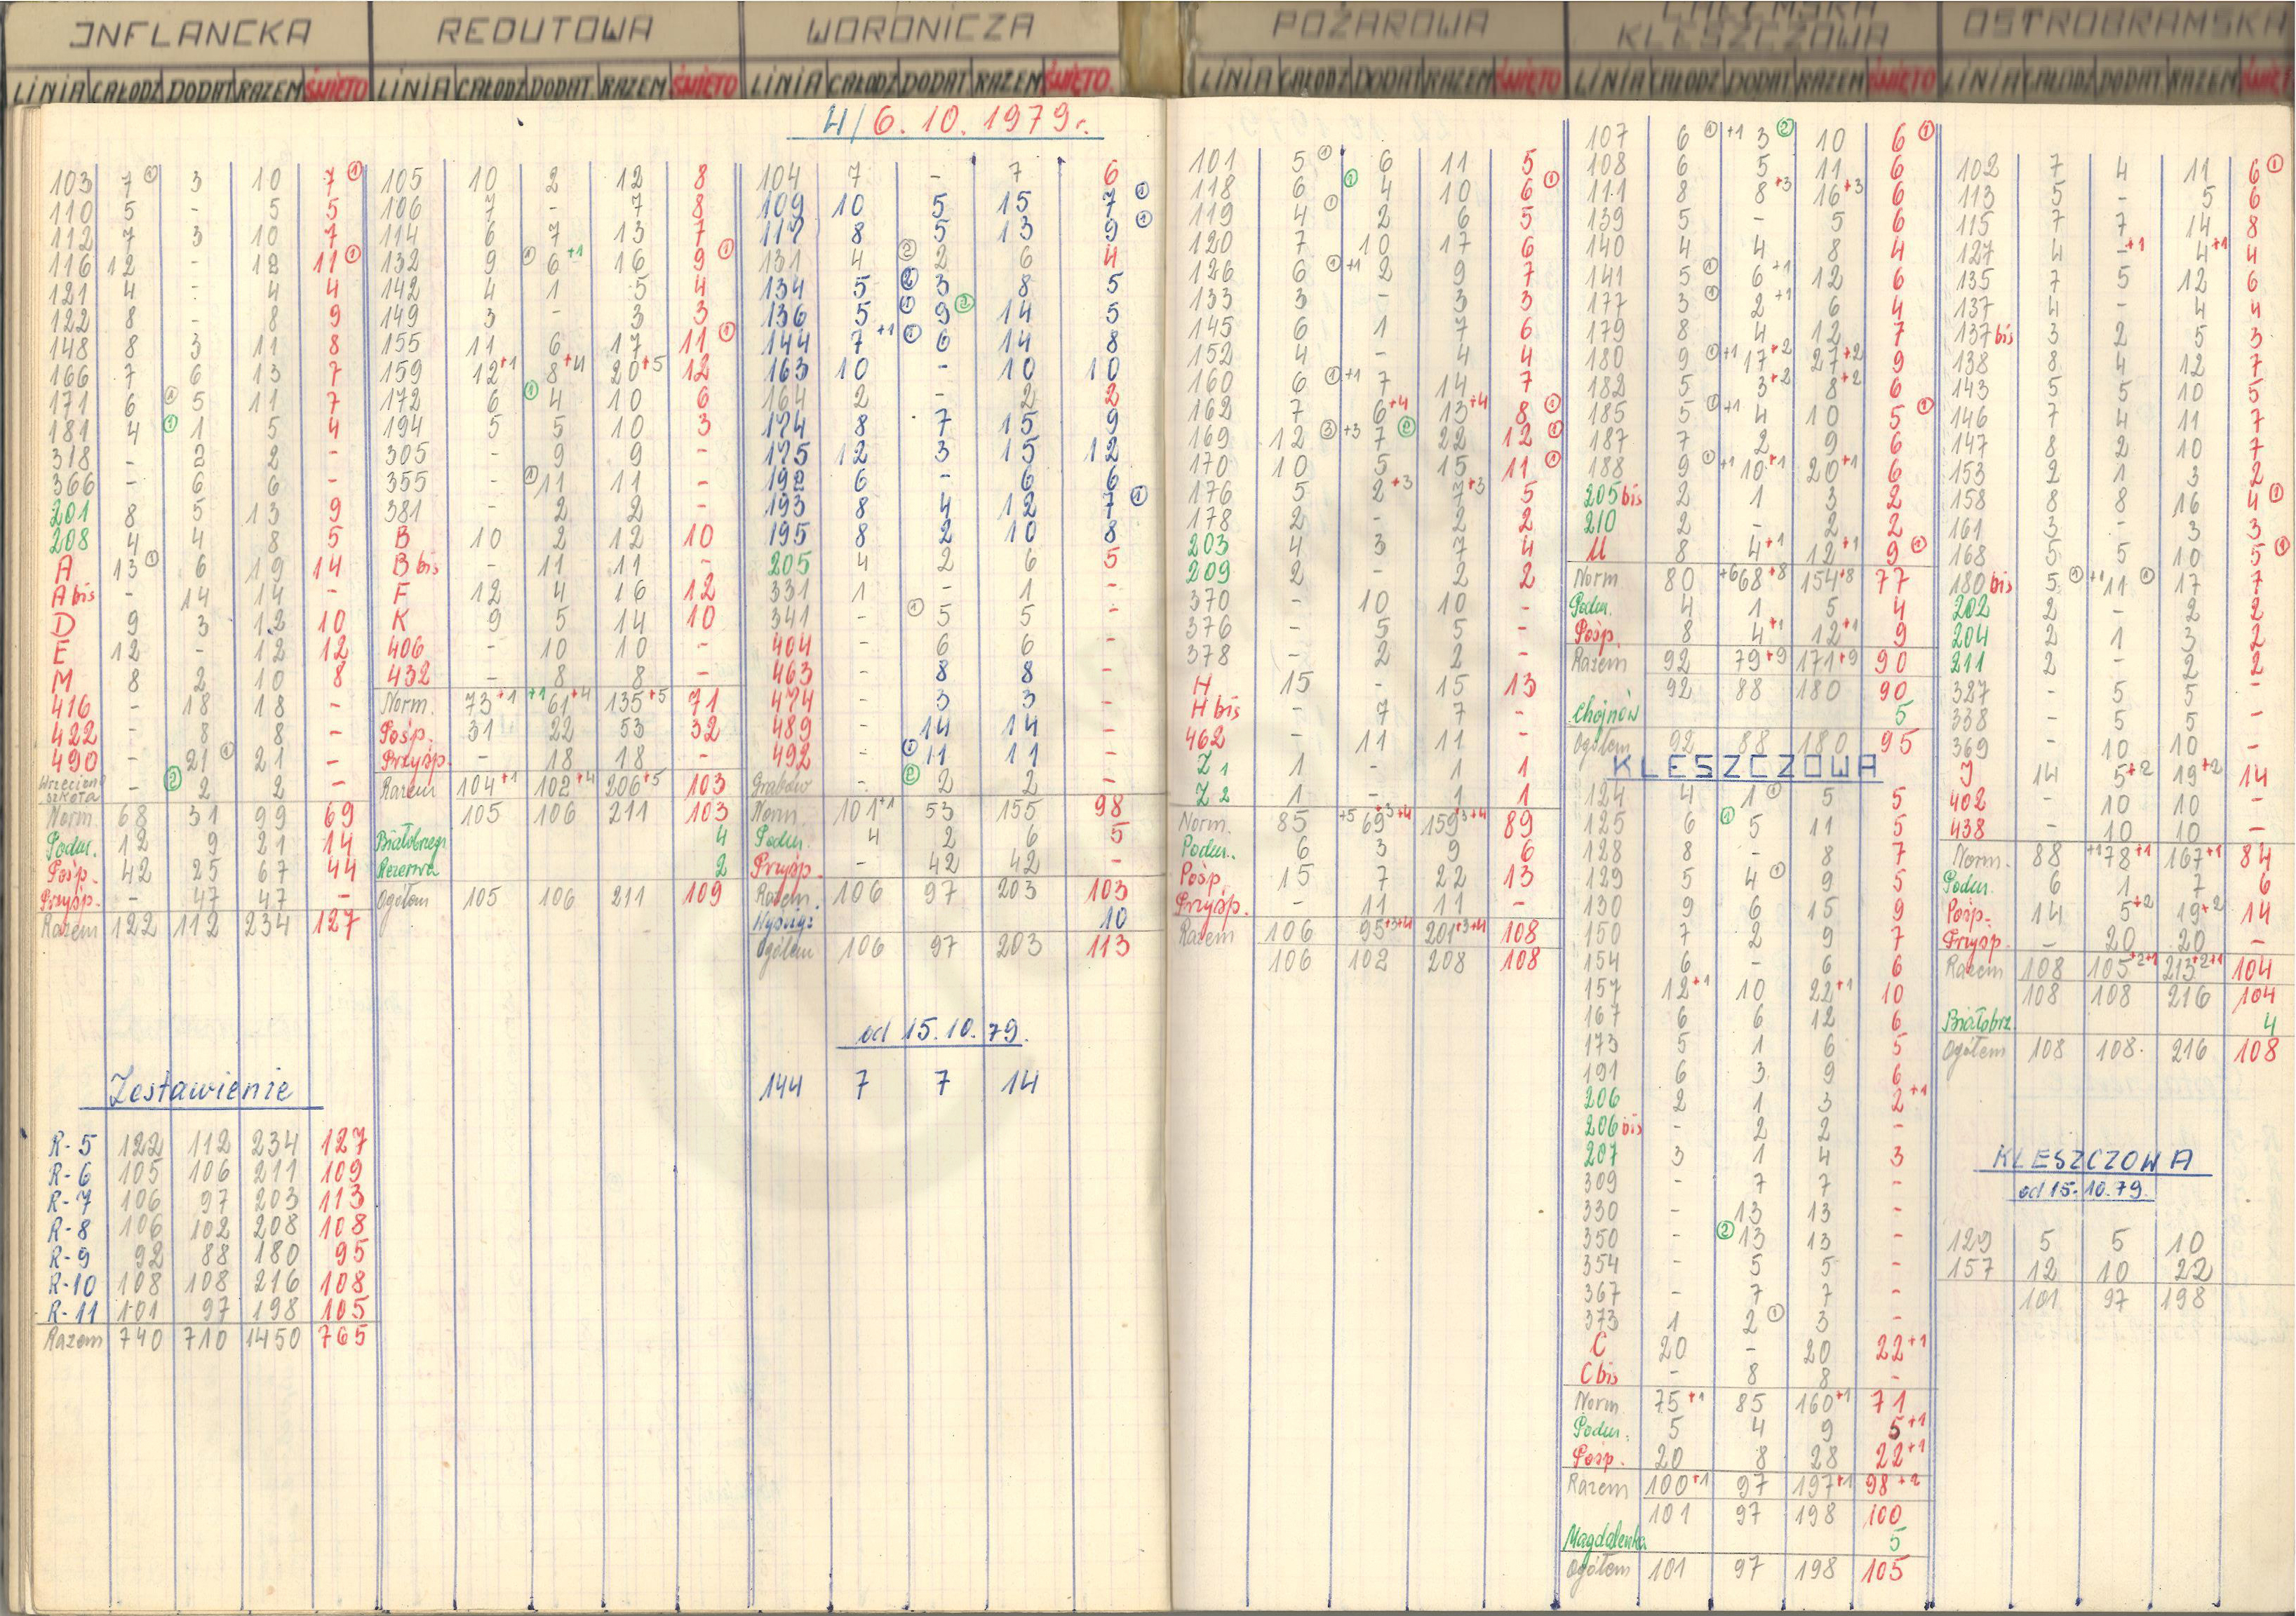 INFLANCKA
LINIA CAŁODZ DODAT RAZEM ŚWIĘTO
103 7 ① 3 10 7 ①
110 5 - 5 5
112 7 3 10 7
116 12 - 12 11 ①
121 4 - 4 4
122 8 - 8 9
148 8 3 11 8
166 7 6 13 7
171 6 ① 5 11 7
181 4 ① 1 5 4
318 - 2 2 -
366 - 6 6 -
201 8 5 13 9
208 4 4 8 5
A 13 ① 6 19 14
A bis - 14 14 -
D 9 3 12 10
E 12 - 12 12
M 8 2 10 8
416 - 18 18 -
422 - 8 8 -
490 - 21 ① 21 -
Wrzeciono szkoła - ② 2 2 -
Norm 68 31 99 69
Podm. 12 9 21 14
Pośp. 42 25 67 44
Przysp. - 47 47 -
Razem 122 112 234 127
Zestawienie
R-5 122 112 234 127
R-6 105 106 211 109
R-7 106 97 203 113
R-8 106 102 208 108
R-9 92 88 180 95
R-10 108 108 216 108
R-11 101 97 198 105
Razem 740 710 1450 765
REDUTOWA
LINIA CAŁODZ DODAT RAZEM ŚWIĘTO
105 10 2 12 8
106 7 - 7 8
114 6 7 13 7
132 9 ① 6 +1 16 9 ①
142 4 1 5 4
149 3 - 3 3
155 11 6 17 11 ①
159 12+1 8+4 20+5 12
172 6 ① 4 10 6
194 5 5 10 3
305 - 9 9 -
355 - ① 11 11 -
381 - 2 2 -
B 10 2 12 10
B bis - 11 11 -
F 12 4 16 12
K 9 5 14 10
406 - 10 10 -
432 - 8 8 -
Norm. 73+1 +1 61+4 135+5 71
Pośp. 31 22 53 32
Przysp. - 18 18 -
Razem 104+1 102+4 206+5 103
105 106 211 103
Białobrzegi 4
Rezerwa 2
Ogółem 105 106 211 109
WORONICZA
LINIA CAŁODZ DODAT RAZEM ŚWIĘTO
4/6.10.1979 r.
104 7 - 7 6
109 10 5 15 7 ①
117 8 5 13 9 ①
131 4 ② 2 6 4
134 5 ② 3 8 5
136 5 ① 9 ② 14 5
144 7 +1 ① 6 14 8
163 10 - 10 10
164 2 - 2 2
174 8 7 15 9
175 12 3 15 12
192 6 - 6 6
193 8 4 12 7 ①
195 8 2 10 8
205 4 2 6 5
331 1 - 1 -
341 - ① 5 5 -
404 - 6 6 -
463 - 8 8 -
474 - 3 3 -
489 - 14 14 -
492 - ① 11 11 -
Grabów - ② 2 2 -
Norm. 101+1 53 155 98
Podm. 4 2 6 5
Przysp. - 42 42 -
Razem. 106 97 203 103
Wyścigi 10
Ogółem 106 97 203 113
od 15.10.79.
144 7 7 14
POŻAROWA
LINIA CAŁODZ DODAT RAZEM ŚWIĘTO
101 5 ① 6 11 5
118 6 ① 4 10 6 ①
119 4 ① 2 6 5
120 7 10 17 6
126 6 ① +1 2 9 7
133 3 - 3 3
145 6 1 7 6
152 4 - 4 4
160 6 ① +1 7 14 7
162 7 6+4 13+4 8 ①
169 12 ③ +3 7 ② 22 12 ①
170 10 5 15 11 ①
176 5 2+3 7+3 5
178 2 - 2 2
203 4 3 7 4
209 2 - 2 2
370 - 10 10 -
376 - 5 5 -
378 - 2 2 -
H 15 - 15 13
H bis - 7 7 -
462 - 11 11 -
Z 1 1 - 1 1
Z 2 1 - 1 1
Norm. 85 +5 69 3+4 159 3+4 89
Podm.. 6 3 9 6
Pośp. 15 7 22 13
Przysp. - 11 11 -
Razem 106 95+3+4 201+3+4 108
106 102 208 108
KLESZCZOWA
LINIA CAŁODZ DODAT RAZEM ŚWIĘTO
107 6 ① +1 3 ② 10 6 ①
108 6 5 11 6
111 8 8+3 16+3 6
139 5 - 5 6
140 4 4 8 4
141 5 ① 6 +1 12 6
177 3 ① 2 +1 6 4
179 8 4 12 7
180 9 ① +1 17+2 27+2 9
182 5 3+2 8+2 6
185 5 ① +1 4 10 5 ①
187 7 2 9 6
188 9 ① +1 10+1 20+1 6
205 bis 2 1 3 2
210 2 - 2 2
U 8 4+1 12+1 9 ①
Norm 80 +6 68+8 154+8 77
Podm. 4 1 5 4
Pośp. 8 4+1 12+1 9
Razem 92 79+9 171+9 90
92 88 180 90
Chojnów 5
Ogółem 92 88 180 95
KLESZCZOWA
124 4 1 ① 5 5
125 6 ① 5 11 5
128 8 - 8 7
129 5 4 ① 9 5
130 9 6 15 9
150 7 2 9 7
154 6 - 6 6
157 12+1 10 22+1 10
167 6 6 12 6
173 5 1 6 5
191 6 3 9 6
206 2 1 3 2+1
206 bis - 2 2 -
207 3 1 4 3
309 - 7 7 -
330 - 13 13 -
350 - ② 13 13 -
354 - 5 5 -
367 - 7 7 -
373 1 2 ① 3 -
C 20 - 20 22+1
C bis - 8 8 -
Norm 75+1 85 160+1 71
Podm. 5 4 9 5+1
Pośp. 20 8 28 22+1
Razem 100+1 97 197+1 98+2
101 97 198 100
Magdalenka 5
Ogółem 101 97 198 105
OSTROBRAMSKA
LINIA CAŁODZ DODAT RAZEM
102 7 4 11 6 ①
113 5 - 5 6
115 7 7 14 8
127 4 -+1 4+1 4
135 7 5 12 6
137 4 - 4 4
137 bis 3 2 5 3
138 8 4 12 7
143 5 5 10 5
146 7 4 11 7
147 8 2 10 7
153 2 1 3 2
158 8 8 16 4 ①
161 3 - 3 3
168 5 5 10 5 ①
180 bis 5 ① +1 11 ① 17 7
202 2 - 2 2
204 2 1 3 2
211 2 - 2 2
327 - 5 5 -
338 - 5 5 -
369 - 10 10 -
J 14 5+2 19+2 14
402 - 10 10 -
438 - 10 10 -
Norm. 88 +1 78+1 167+1 84
Podm. 6 1 7 6
Pośp. 14 5+2 19+2 14
Przysp. - 20 20 -
Razem 108 105+2+1 213+2+1 104
108 108 216 104
Białobrz. 4
Ogółem 108 108. 216 108
KLESZCZOWA
od 15.10.79.
129 5 5 10
157 12 10 22
101 97 198